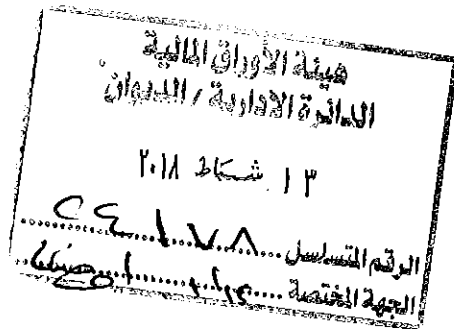 هيئة الأوراق المالية
الدائرة الادارية / الديوان
١٣ شباط ٢٠١٨
الرقم المتسلسل
الجهة المختصة